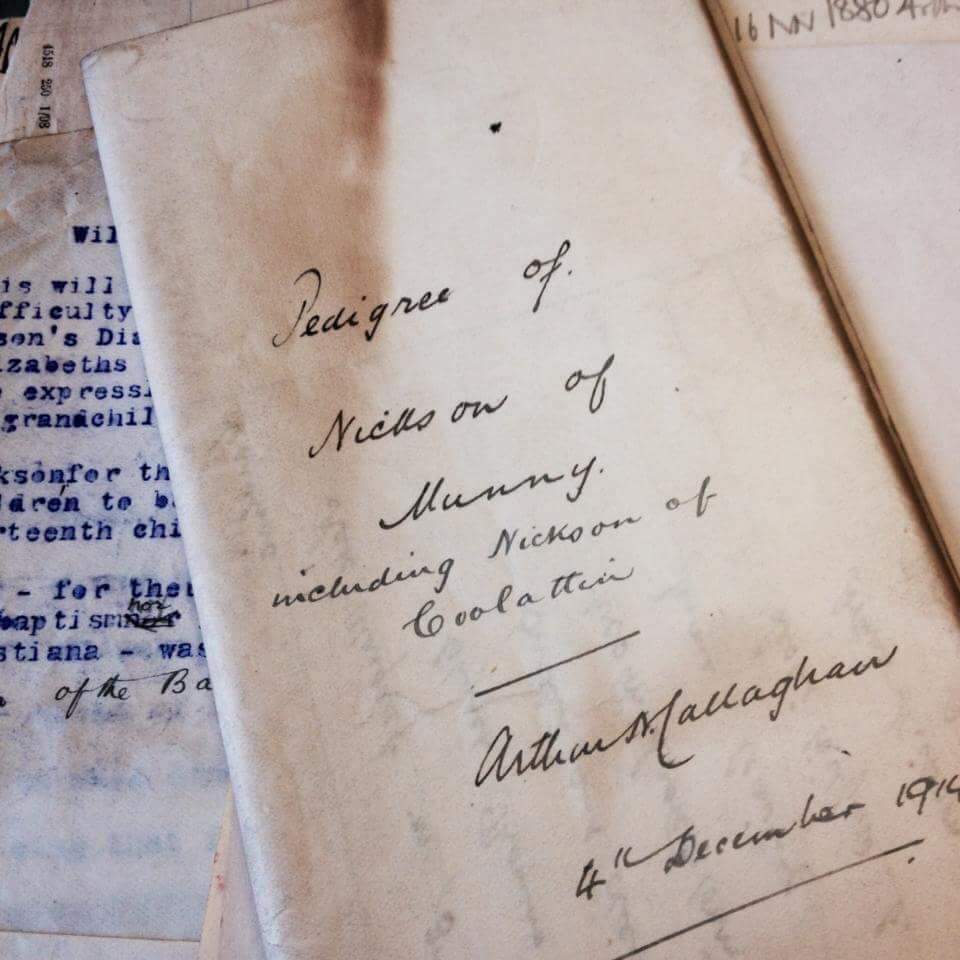 4518 250 1/08
16 Nov 1880
Wil
is will
fficulty
son's Dia
zabeths
expressi
grandchil
ksonfor th
dren to b
rteenth chi
- for the
baptism nor
stiana - was
of the Ba
Pedigree of.
Nickson of
Munny.
including Nickson of
Coolattin
Arthur N. Callaghan
4th December 191